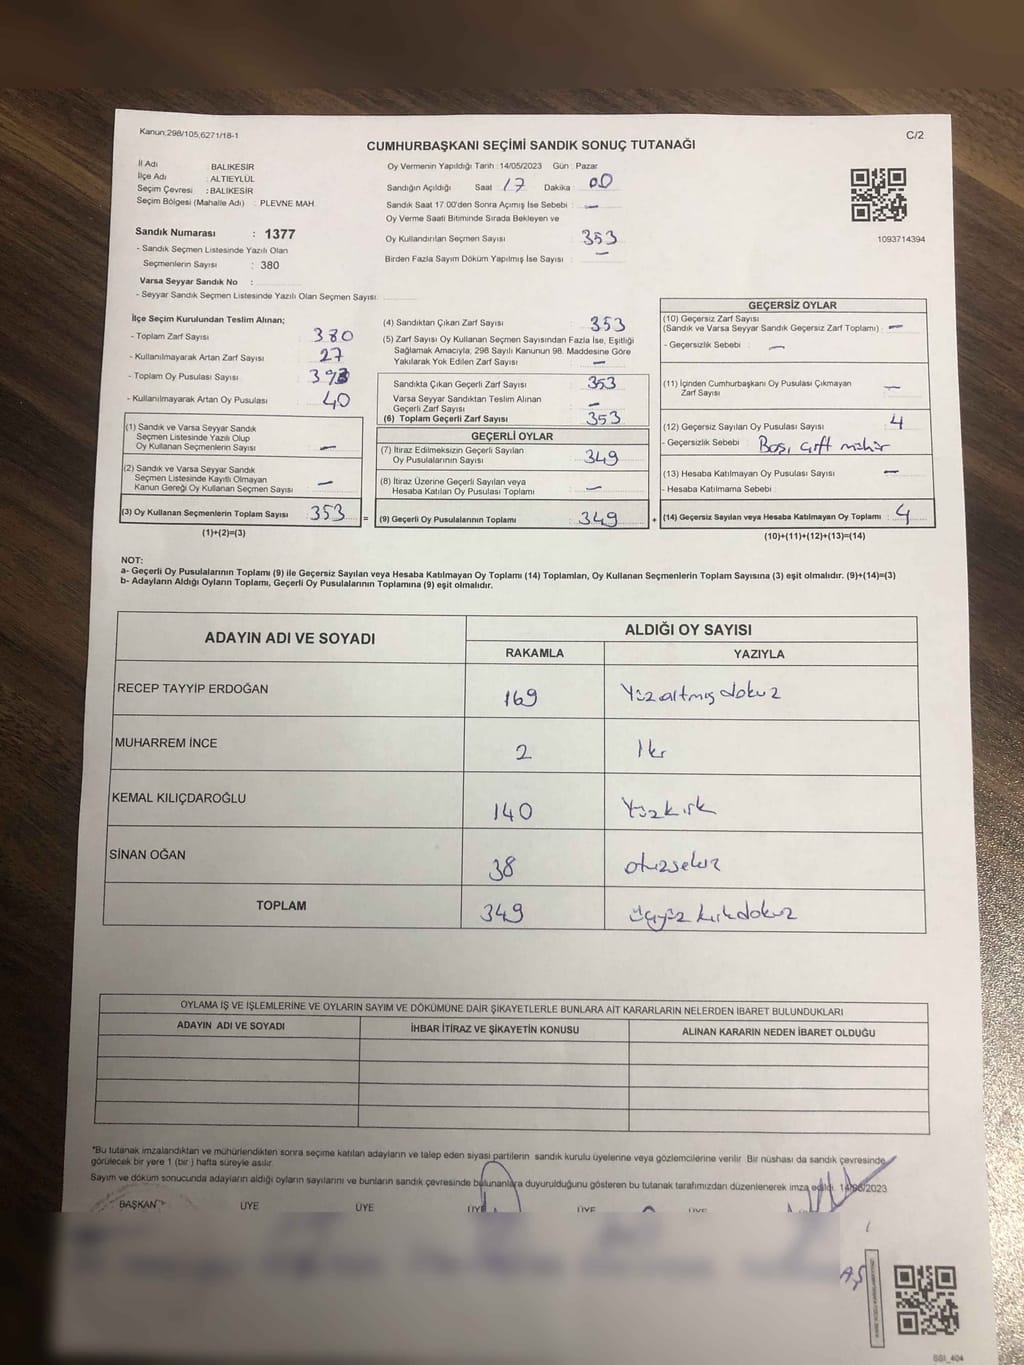 Kanun;298/105,6271/18-1
C/2
CUMHURBAŞKANI SEÇİMİ SANDIK SONUÇ TUTANAĞI
İl Adı BALIKESİR
İlçe Adı : ALTIEYLÜL
Seçim Çevresi : BALIKESİR
Seçim Bölgesi (Mahalle Adı) : PLEVNE MAH.
Sandık Numarası : 1377
- Sandık Seçmen Listesinde Yazılı Olan
Seçmenlerin Sayısı : 380
Varsa Seyyar Sandık No :
- Seyyar Sandık Seçmen Listesinde Yazılı Olan Seçmen Sayısı:
Oy Vermenin Yapıldığı Tarih :14/05/2023 Gün : Pazar
Sandığın Açıldığı Saat 17 Dakika : 00
Sandık Saat 17.00'den Sonra Açımış İse Sebebi : —
Oy Verme Saati Bitiminde Sırada Bekleyen ve
Oy Kullandırılan Seçmen Sayısı 353
Birden Fazla Sayım Döküm Yapılmış İse Sayısı : —
1093714394
İlçe Seçim Kurulundan Teslim Alınan;
- Toplam Zarf Sayısı 380
- Kullanılmayarak Artan Zarf Sayısı 27
- Toplam Oy Pusulası Sayısı 393
- Kullanılmayarak Artan Oy Pusulası 40
(1) Sandık ve Varsa Seyyar Sandık
Seçmen Listesinde Yazılı Olup
Oy Kullanan Seçmenlerin Sayısı : —
(2) Sandık ve Varsa Seyyar Sandık
Seçmen Listesinde Kayıtlı Olmayan
Kanun Gereği Oy Kullanan Seçmen Sayısı : —
(3) Oy Kullanan Seçmenlerin Toplam Sayısı : 353
(1)+(2)=(3)
=
(4) Sandıktan Çıkan Zarf Sayısı : 353
(5) Zarf Sayısı Oy Kullanan Seçmen Sayısından Fazla İse, Eşitliği
Sağlamak Amacıyla; 298 Sayılı Kanunun 98. Maddesine Göre
Yakılarak Yok Edilen Zarf Sayısı : —
Sandıkta Çıkan Geçerli Zarf Sayısı : 353
Varsa Seyyar Sandıktan Teslim Alınan
Geçerli Zarf Sayısı : —
(6) Toplam Geçerli Zarf Sayısı : 353
GEÇERLİ OYLAR
(7) İtiraz Edilmeksizin Geçerli Sayılan
Oy Pusulalarının Sayısı : 349
(8) İtiraz Üzerine Geçerli Sayılan veya
Hesaba Katılan Oy Pusulası Toplamı : —
(9) Geçerli Oy Pusulalarının Toplamı : 349
+
GEÇERSİZ OYLAR
(10) Geçersiz Zarf Sayısı
(Sandık ve Varsa Seyyar Sandık Geçersiz Zarf Toplamı) : —
- Geçersizlik Sebebi : —
(11) İçinden Cumhurbaşkanı Oy Pusulası Çıkmayan
Zarf Sayısı : —
(12) Geçersiz Sayılan Oy Pusulası Sayısı : 4
- Geçersizlik Sebebi : Boş, çift mühür
(13) Hesaba Katılmayan Oy Pusulası Sayısı : —
- Hesaba Katılmama Sebebi :
(14) Geçersiz Sayılan veya Hesaba Katılmayan Oy Toplamı : 4
(10)+(11)+(12)+(13)=(14)
NOT:
a- Geçerli Oy Pusulalarının Toplamı (9) ile Geçersiz Sayılan veya Hesaba Katılmayan Oy Toplamı (14) Toplamları, Oy Kullanan Seçmenlerin Toplam Sayısına (3) eşit olmalıdır. (9)+(14)=(3)
b- Adayların Aldığı Oyların Toplamı, Geçerli Oy Pusulalarının Toplamına (9) eşit olmalıdır.
ADAYIN ADI VE SOYADI
ALDIĞI OY SAYISI
RAKAMLA YAZIYLA
RECEP TAYYİP ERDOĞAN 169 Yüzaltmış dokuz
MUHARREM İNCE 2 İki
KEMAL KILIÇDAROĞLU 140 Yüzkırk
SİNAN OĞAN 38 otuzsekiz
TOPLAM 349 üçyüz kırkdokuz
OYLAMA İŞ VE İŞLEMLERİNE VE OYLARIN SAYIM VE DÖKÜMÜNE DAİR ŞİKAYETLERLE BUNLARA AİT KARARLARIN NELERDEN İBARET BULUNDUKLARI
ADAYIN ADI VE SOYADI İHBAR İTİRAZ VE ŞİKAYETİN KONUSU ALINAN KARARIN NEDEN İBARET OLDUĞU
*Bu tutanak imzalandıktan ve mühürlendikten sonra seçime katılan adayların ve talep eden siyasi partilerin sandık kurulu üyelerine veya gözlemcilerine verilir. Bir nüshası da sandık çevresinde
görülecek bir yere 1 (bir ) hafta süreyle asılır.
Sayım ve döküm sonucunda adayların aldığı oyların sayılarını ve bunların sandık çevresinde bulunanlara duyurulduğunu gösteren bu tutanak tarafımızdan düzenlenerek imza edildi. 14/05/2023
BAŞKAN ÜYE ÜYE ÜYE ÜYE ÜYE
SSI_404